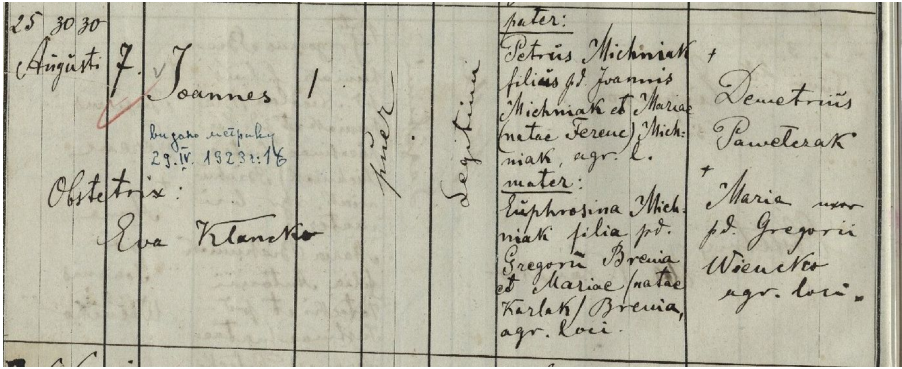 25 30 30
Augusti
7.
Joannes
1
puer
Legitimi
видано метрику
29.IV. 1923 г: 18
Obstetrix:
Eva Klancko
pater:
Petrus Michniak
filius pd. Joannis
Michniak et Mariae
(natae Ferenc) Mich-
niak, agr. l.
mater:
Euphrosina Mich-
niak filia pd.
Gregorii Brenia
et Mariae /natae
Karlak/ Brenia,
agr. loci.
+
Demetrius
Pawełczak
+
Maria uxor
pd. Gregorii
Wiencko
agr. loci.